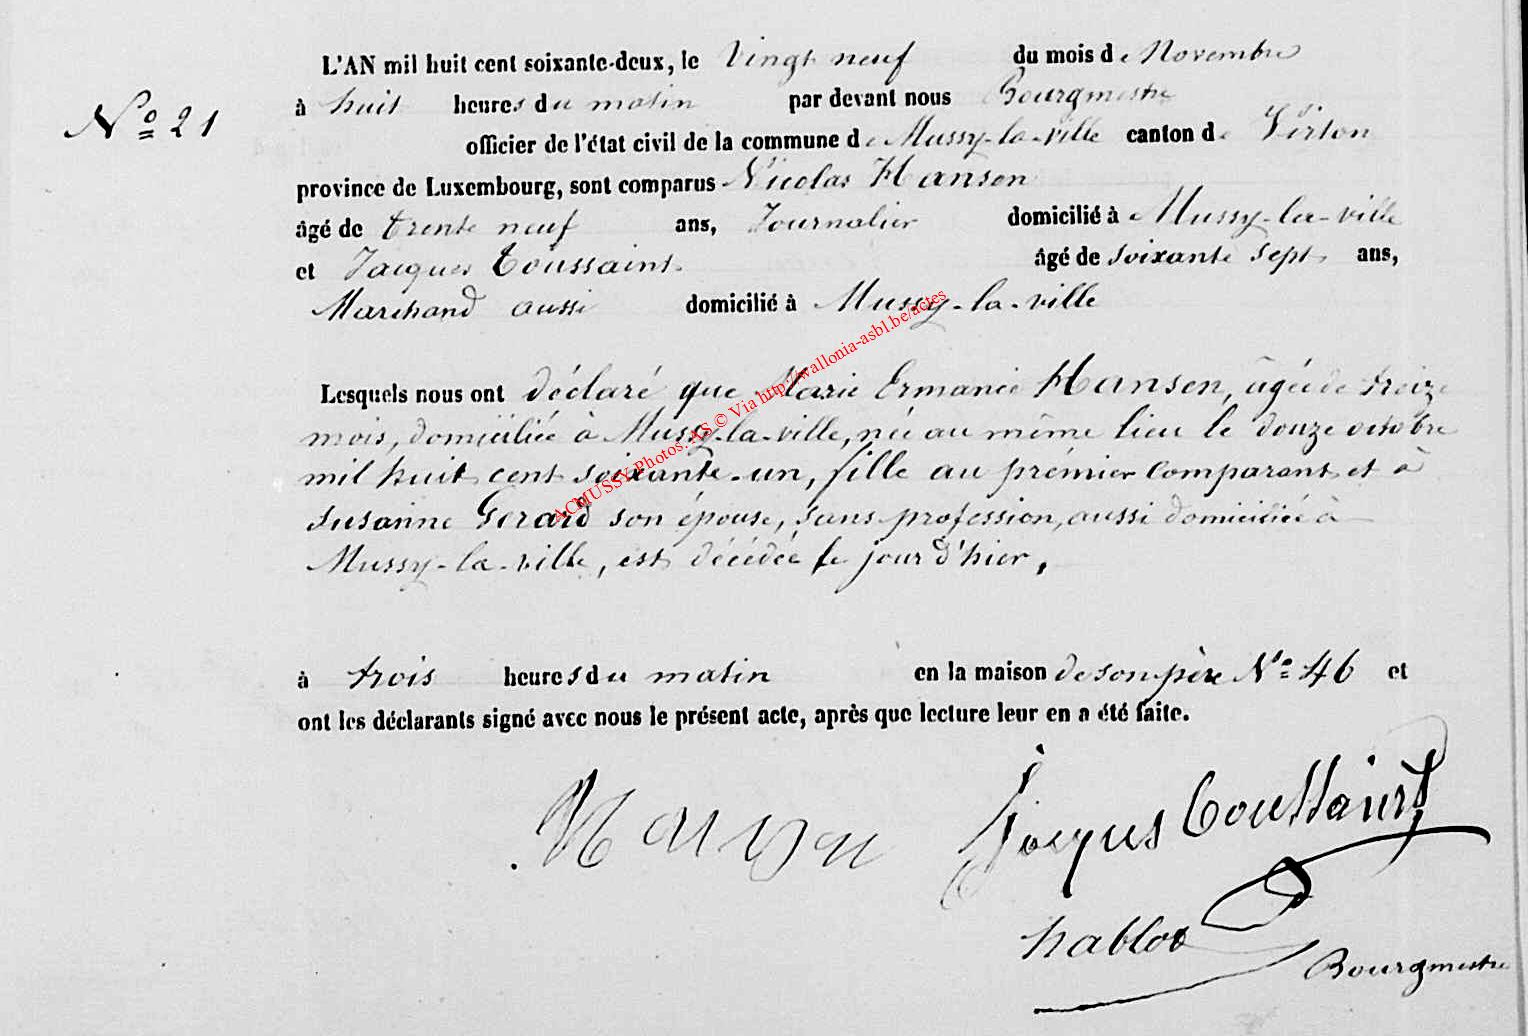 L'AN mil huit cent soixante-deux, le Vingt neuf du mois de Novembre
N° 21
à huit heures du matin par devant nous Bourgmestre
officier de l'état civil de la commune de Mussy-la-ville canton de Virton
province de Luxembourg, sont comparus Nicolas Hansen
âgé de trente neuf ans, Journalier domicilié à Mussy-la-ville
et Jacques Toussaint âgé de soixante sept ans,
Marchand aussi domicilié à Mussy-la-ville
Lesquels nous ont déclaré que Marie Ermanie Hansen, âgée de treize
mois, domiciliée à Mussy-la-ville, née au même lieu le douze octobre
mil huit cent soixante-un, fille au prémier Comparant et à
Susanne Gerard son épouse, sans profession, aussi domiciliée à
Mussy-la-ville, est décédée le jour d'hier,
ACMUSSY-Photos.AS © Via http://wallonia-asbl.be/actes
à trois heures du matin en la maison de son père N° 46 et
ont les déclarants signé avec nous le présent acte, après que lecture leur en a été faite.
Jacques Toussaint
hablot
Bourgmestre